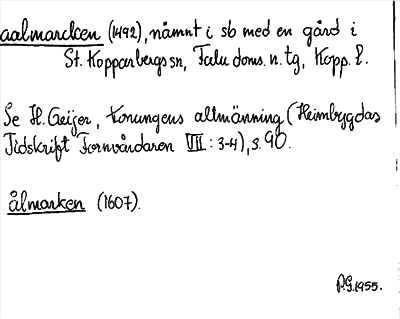 aalmarcken (1492), nämnt i sb med en gård i
St. Kopparbergs sn, Falu doms. n. tg, Kopp. l.
Se H. Geijer, Konungens allmänning (Heimbygdas
Tidskrift Fornvårdaren VII: 3-4), s. 90.
ålmarken (1607).
P.G. 1955.